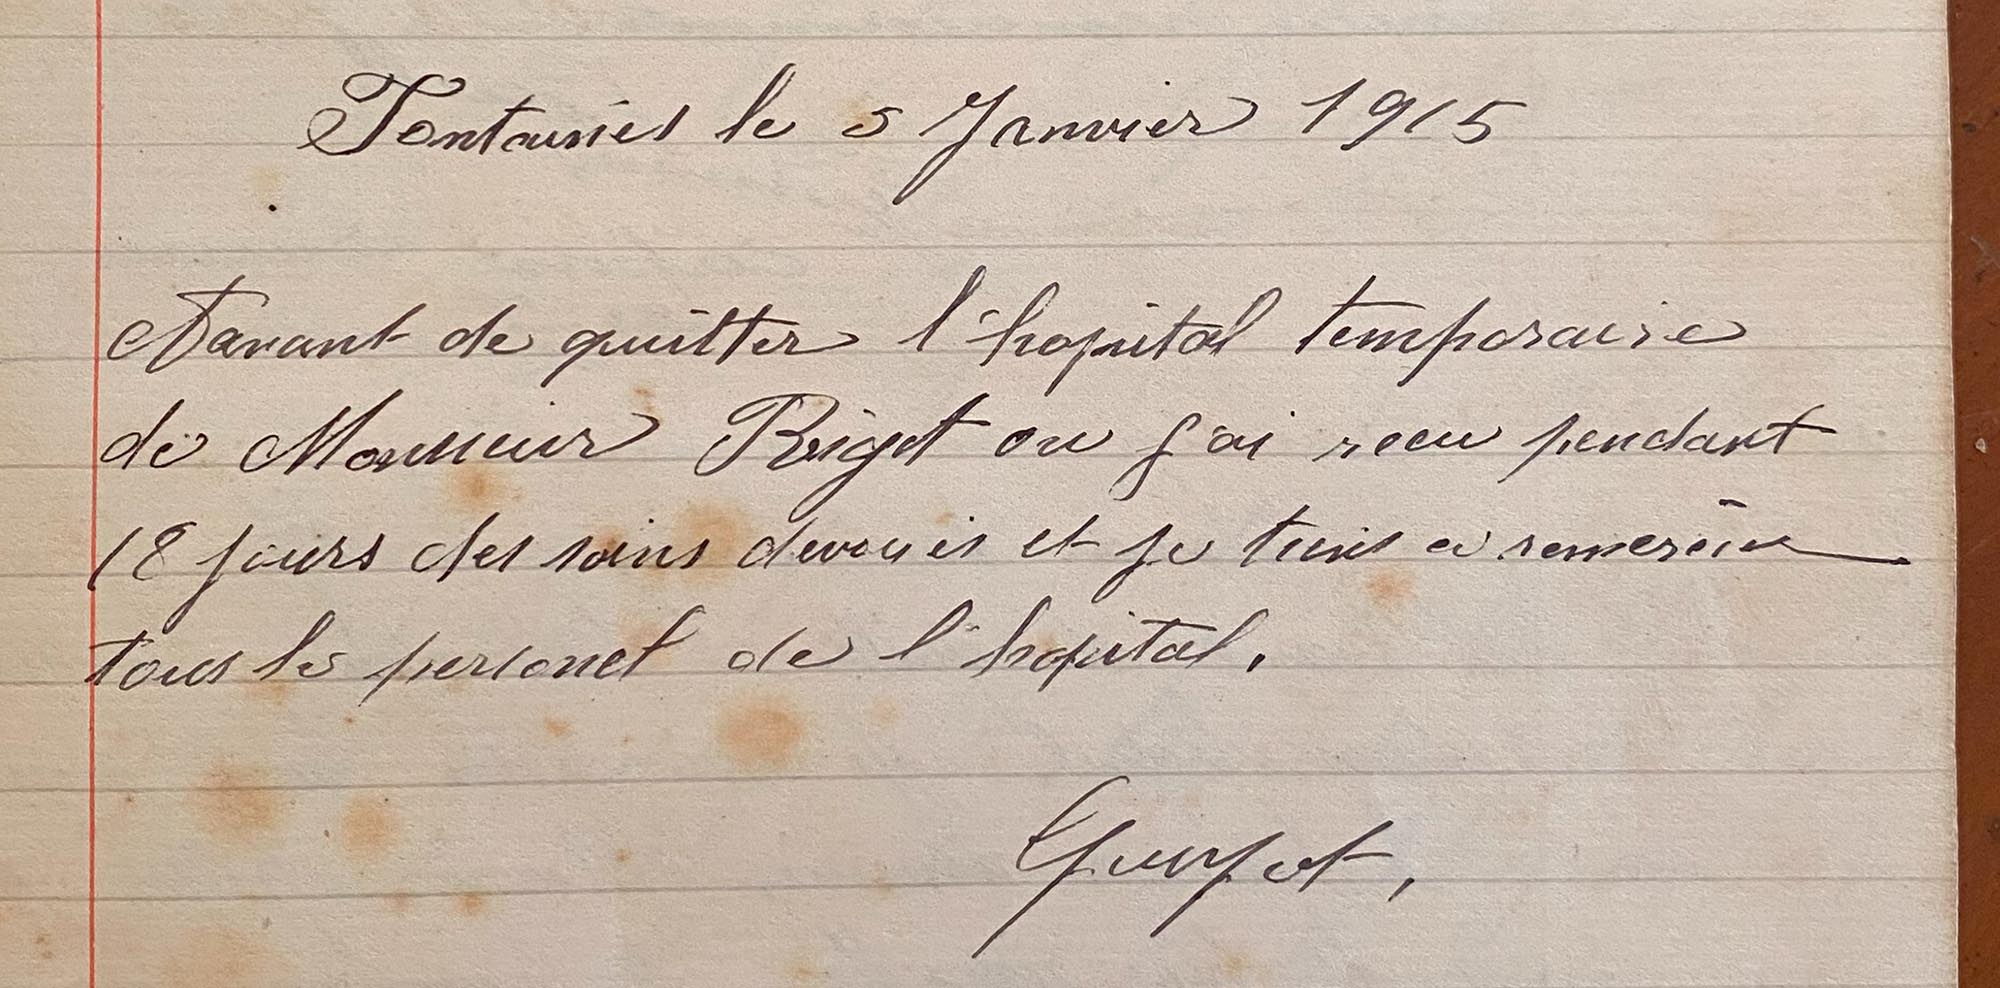 Fontaines le 5 Janvier 1915
Avant de quitter l'hopital temporaire
de Monsieur Rigot ou j'ai recu pendant
18 jours des soins devoués et je tiens a remercier
tous le personel de l'hopital.
Guyot.